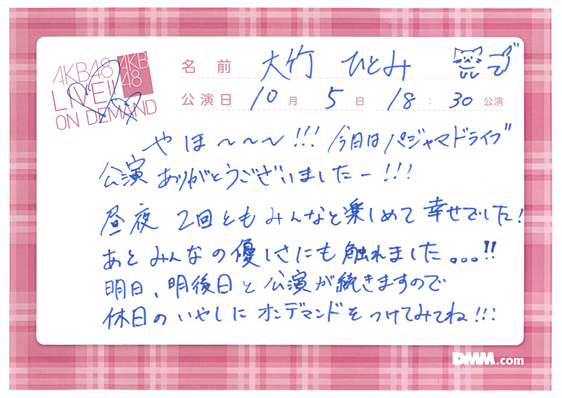 AKB48 AKB
LIVE!! 48
ON DEMAND
名前 大竹 ひとみ
公演日 10月 5日 18:30公演
やほ〜〜〜!!! 今日はパジャマドライブ
公演ありがとうございましたー!!!
昼夜 2回ともみんなと楽しめて幸せでした!
あとみんなの優しさにも触れました。。。!!
明日、明後日と公演が続きますので
休日のいやしにオンデマンドをつけてみてね!!!
DMM.com